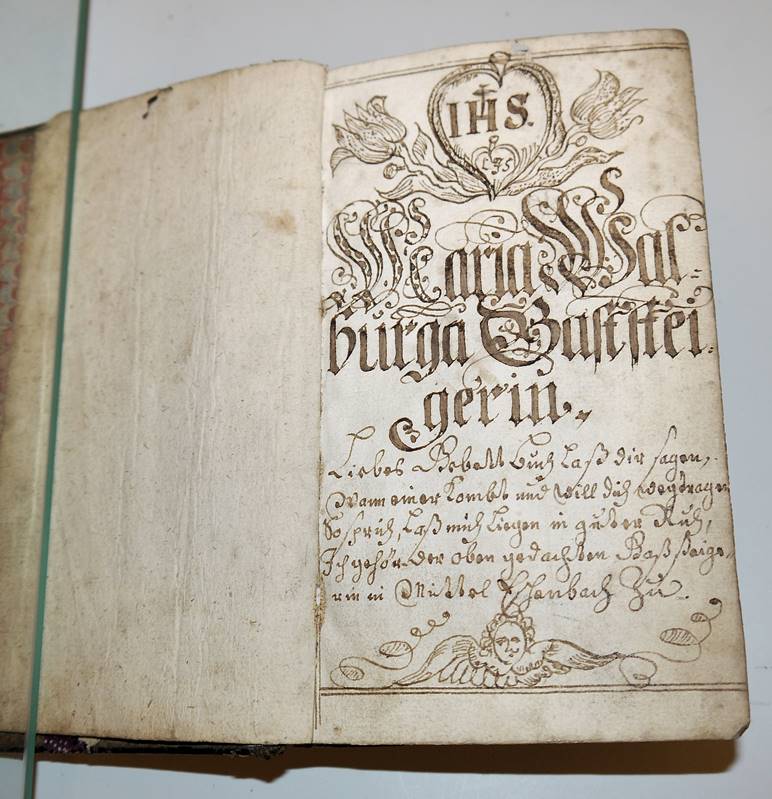 IHS.
Maria Wal-
burga Baststei-
gerin.
Liebes Bebett buch Laß dir sagen,
Wann einer kombt und will dich wegtragen
So sprich, Laß mich Liegen in guter Ruh,
Ich gehör der oben gedachten Baßsteige-
rin in Mittel Eschenbach Zu.